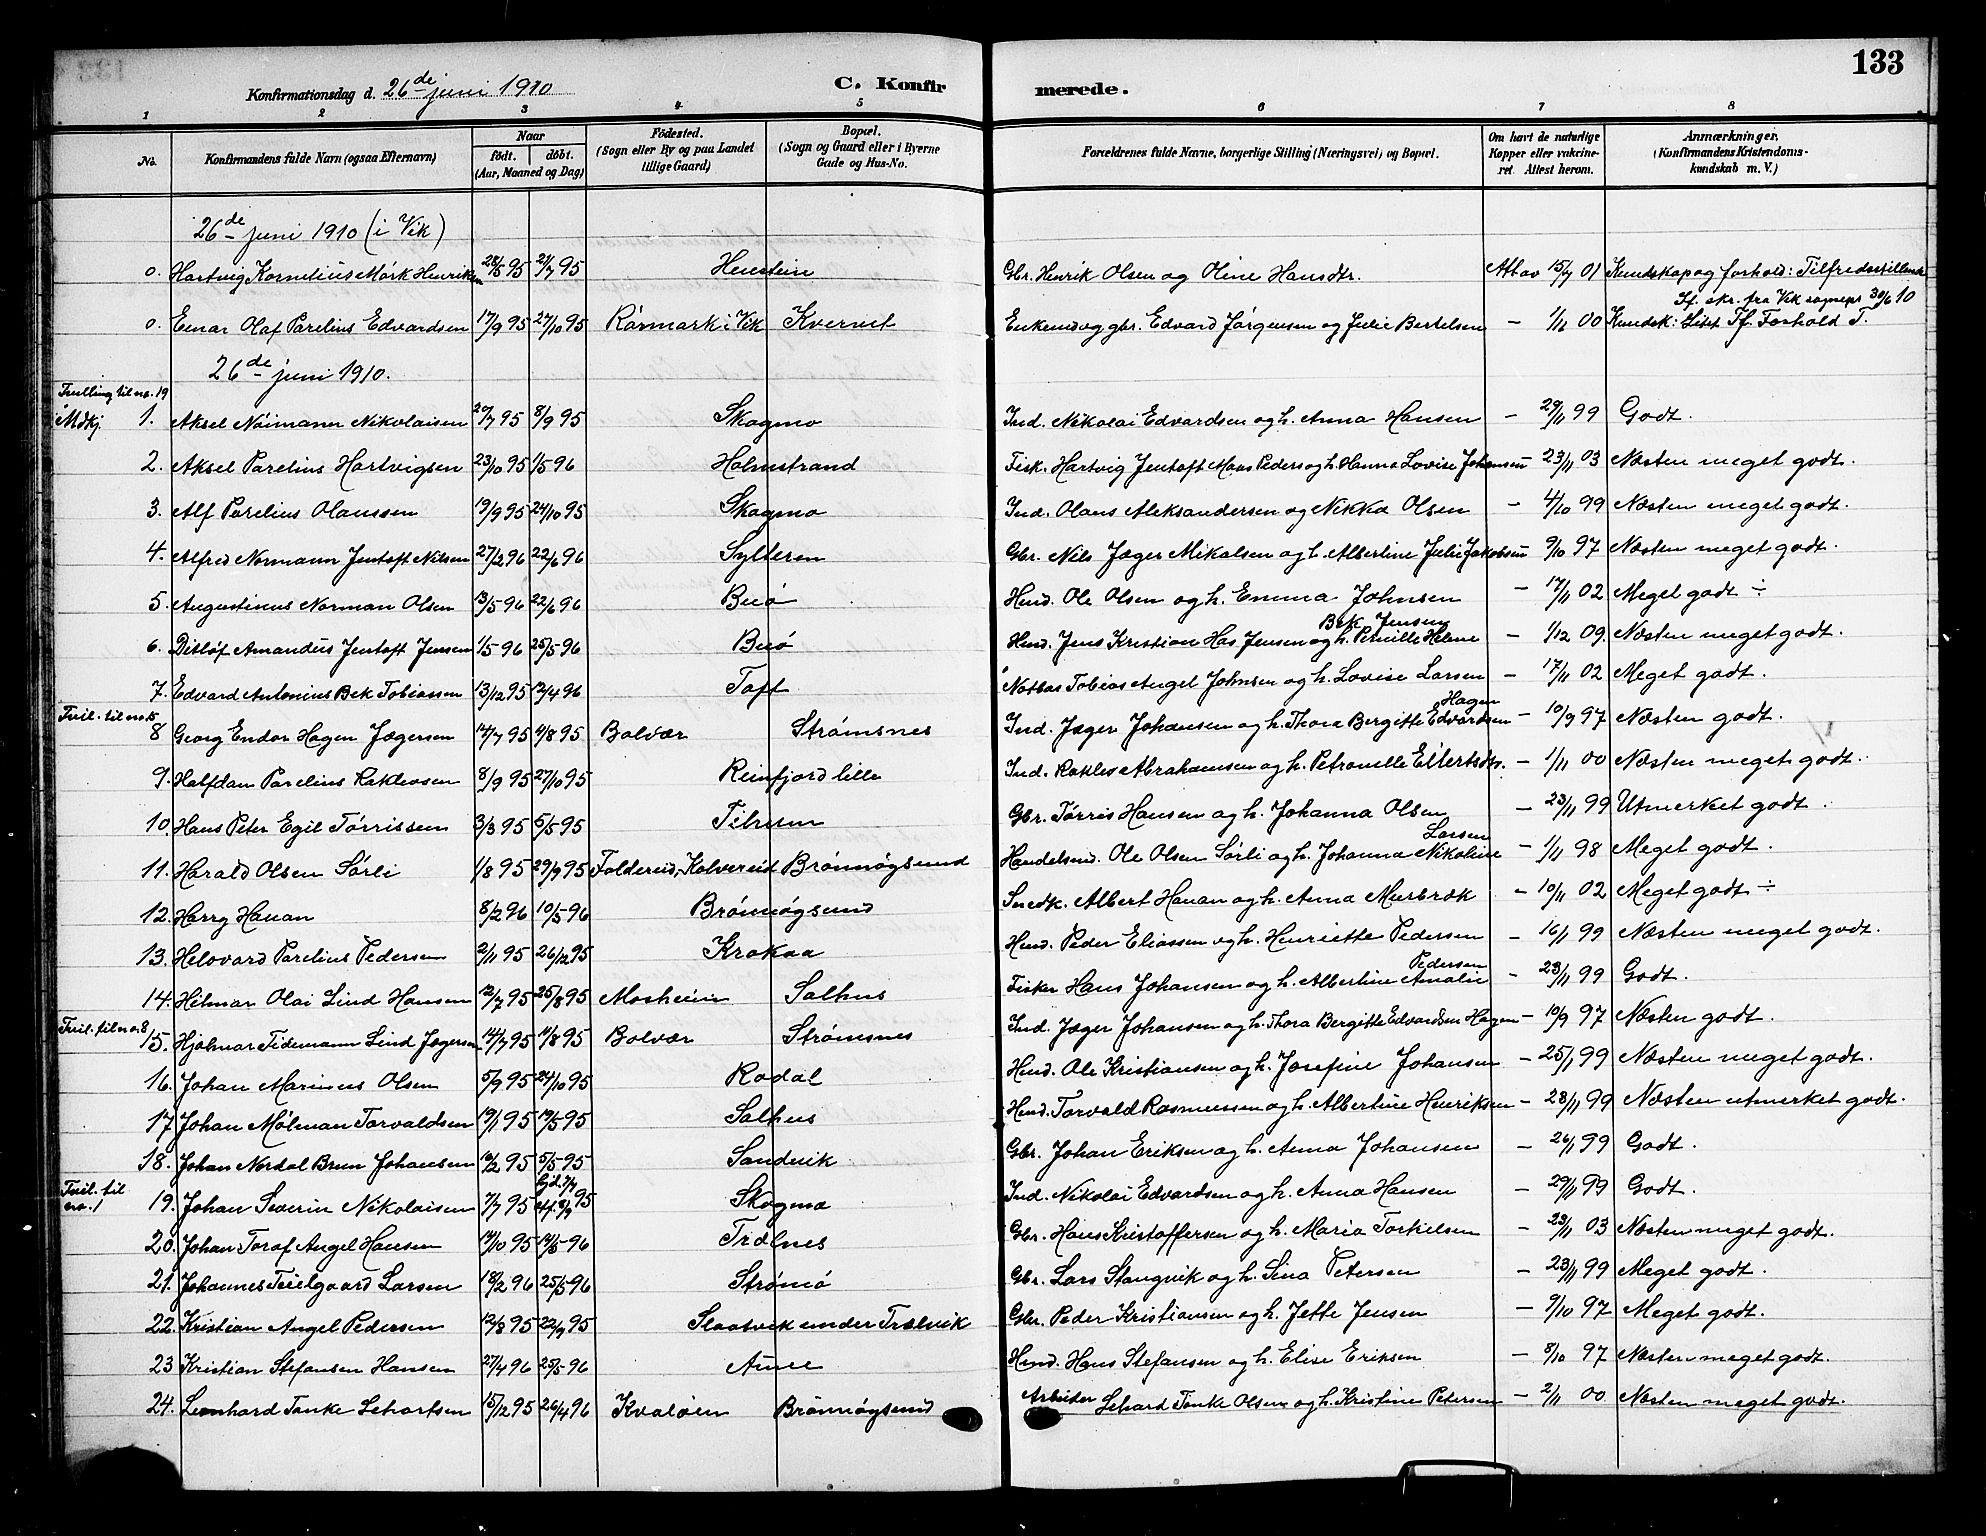 133
Konfirmationsdag d. 26de juni 1910
C. Konfirmerede.
1 2 3 4 5 6 7 8
No. Konfirmandens fulde Navn (ogsaa Efternavn) Naar födt. döbt. (Aar, Maaned og Dag) Födested. (Sogn eller By og paa Landet tillige Gaard) Bopæl. (Sogn og Gaard eller i Byerne Gade og Hus-No. Forældrenes fulde Navne, borgerlige Stilling (Næringsvei) og Bopæl. Om havt de naturlige Kopper eller vakcineret. Attest herom. Anmærkninger. (Konfirmandens Kristendomskundskab m. V.)
26de juni 1910 (i Vik)
0. Hartvig Kornelius Mörk Henriksen 28/5 95 21/7 95 Henstein Gbr. Henrik Olsen og Oline Hansdtr. Att av 15/7 01 Kundskap og forhold: Tilfredsstillende
Sf. skr. fra Vik sognepr 30/6 10
0. Einar Olaf Parelius Edvardsen 17/9 95 27/10 95 Rörmark i Vik Kvervet Enkemd og gbr. Edvard Jörgensen og Julie Bertelsen — 1/11 00 Kundsk: Litet Tf. Forhold T.
26de juni 1910.
Tvilling til no. 19
Mdkj. 1. Aksel Nöimann Nikolaisen 20/7 95 8/9 95 Skogmo Ind. Nikolai Edvardsen og h. Anna Hansen — 29/11 99 Godt.
2. Aksel Parelius Hartvigsen 23/10 95 1/5 96 Holmstrand Fisk. Hartvig Jentoft Mons Peders og h. Hanna Lovise Johansen — 23/11 03 Næsten meget godt.
3. Alf Parelius Olaussen 19/9 95 24/10 95 Skogmo Ind. Olaus Aleksandersen og Nikka Olsen — 4/10 99 Næsten meget godt.
4. Alfred Normann Jentoft Nilsen 27/2 96 22/6 96 Sylteren Gbr. Nils Jæger Mikalsen og h. Albertine Julie Jakobsen 9/10 97 Næsten meget godt.
5. Augustinus Norman Olsen 13/5 96 22/6 96 Buö Hmd. Ole Olsen og h. Emma Johnsen — 17/11 02 Meget godt ÷
Bek Jensen
6. Ditlöf Amandus Jentoft Jensen 1/5 96 25/5 96 Buö Hmd. Jens Kristian Has Jensen og h. Pernille Helene — 1/12 09 Næsten meget godt.
7. Edvard Antonius Bek Tobiassen 13/12 95 12/4 96 Toft Notbas Tobias Angel Johnsen og h. Lovise Larsen — 17/11 02 Meget godt.
Tvil. til no. 15 Hagen
8 Georg Endor Hagen Jægersen 14/7 95 4/8 95 Bolvær Strömsnes Ind. Jæger Johansen og h. Thora Bergitte Edvardsen — 10/9 97 Næsten godt.
9. Halfdan Parelius Rakleosen 8/9 95 27/10 95 Reinfjord lille Ind. Rakleo Abrahamsen og h. Petronelle Eilertsdtr. — 1/11 00 Næsten meget godt.
10. Hans Peter Egil Törrissen 3/3 95 5/5 95 Tilrem Gbr. Törris Hansen og h. Johanna Olsen — 23/11 99 Utmerket godt.
Larsen
11. Harald Olsen Sörli 1/8 95 29/9 95 Foldereid, Kolvereid Brönnögsund Handelsmd. Ole Olsen Sörli og h. Johanna Nikoline — 1/11 98 Meget godt.
12. Harry Hauan 8/2 96 10/5 96 Brönnögsund Snedk. Albert Hauan og h. Anna Murbræk — 10/11 02 Meget godt ÷
13. Helovard Parelius Pedersen 2/11 95 26/12 95 Krokaa Hmd. Peder Eliassen og h. Henriette Pedersen — 16/1 99 Næsten meget godt.
Pedersen
14. Hilmar Olai Lind Hansen 12/7 95 25/8 95 Mosheim Salhus Fisker Hans Johansen og h. Albertine Amalie — 23/11 99 Godt.
Tvil. til no. 8
15. Hjalmar Tidemann Lind Jægersen 14/7 95 4/8 95 Bolvær Strömsnes Ind. Jæger Johansen og h. Thora Bergitte Edvardsen Hagen — 10/9 97 Næsten godt.
16. Johan Marinus Olsen 5/9 95 24/10 95 Rodal Hmd. Ole Kristiansen og h. Josefine Johansen — 25/1 99 Næsten meget godt.
17. Johan Mölman Torvaldsen 19/1 95 19/5 95 Salhus Hmd. Torvald Rasmussen og h. Albertine Henriksen — 28/11 99 Næsten utmerket godt.
18. Johan Nordal Brun Johansen 10/2 95 5/5 95 Sandvik Gbr. Johan Eriksen og h. Anna Johansen — 26/1 99 Godt.
Tvil. til no. 1
19. Johan Severin Nikolaisen 7/7 95 Hjd. 7/7 st. 8/9 95 Skogmo Ind. Nikolai Edvardsen og h. Anna Hansen — 29/11 99 Godt.
20. Johan Toraf Angel Hansen 14/10 95 14/5 96 Trælnes Gbr. Hans Kristoffersen og h. Maria Torkelsen — 23/11 03 Næsten meget godt.
21. Johannes Teielgaard Larsen 18/2 96 25/5 96 Strömö Gbr. Lars Stangvik og h. Sina Petersen — 23/11 99 Meget godt.
22. Kristian Angel Pedersen 12/8 95 22/9 95 Slaatvik under Trælvik Gbr. Peder Kristiansen og h. Jette Jensen — 9/10 97 Meget godt.
23 Kristian Stefansen Hansen 27/4 96 25/5 96 Aune Hmd. Hans Stefansen og h. Elise Eriksen — 8/10 97 Næsten meget godt.
24. Leonhard Tanke Lehartsen 15/12 95 26/4 96 Kvalöen Brönnögsund Arbeider Lehard Tanke Olsen og h. Kristine Petersen — 2/11 00 Næsten meget godt.